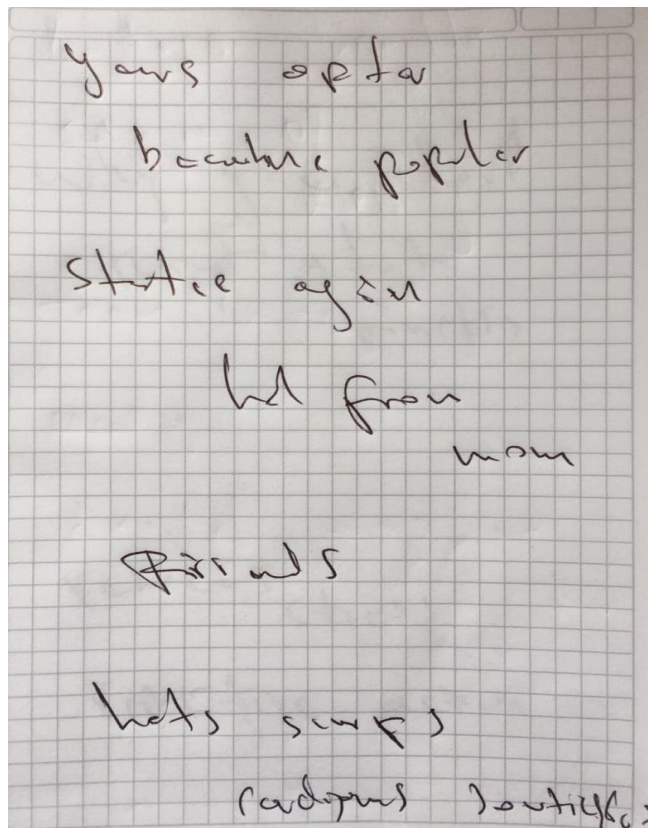 Years after
became popular
started again
hd from
mom
friends
hats scarfs
cardigans